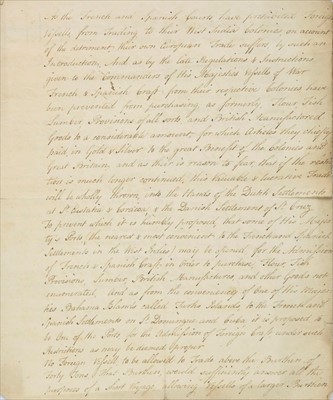 As the French and Spanish Courts have prohibited Foreign
Vessels from Trading to their West Indies Colonies on account
of the detriment, their own European Trade suffers by such an
Introduction, And as by the late Regulations & Instructions
given to the Commanders of His Majesties Vessels of War
French & Spanish Craft from their respective Colonies have
been prevented from purchasing as formerly Flour Fish
Lumber Provisions of all sorts and British Manufactured
Goods to a considerable amount, for which Articles they chiefly
paid in Gold & Silver to the great Benefit of the Colonies and
Great Britain, and as there is reason to fear that if the
is much longer continued, this Valuable & lucrative Trade
will be wholly thrown into the Hands of the Dutch Settlements
at St Eustatia & Curacao & the Danish Settlements of St Cruz
To prevent which it is humbly proposed, that some of His Majes
ty's Ports (the nearest & most convenient to the French and Spanish
Settlements in the West Indies) may be opened for the Admission
of French & Spanish Craft in order to purchase Flour Fish
Provisions, Lumber, British Manufactures, and other Goods not
enumerated, And as from the conveniency of One of His Majes
ties Bahama Islands called Turks Islands, to the French and
Spanish Settlements on St Domingue and Cuba, it is proposed to
be One of the Ports, for the Admission of Foreign Craft under such
Restrictions as may be deemed proper
No Foreign Vessel to be allowed to Trade above the Burthen of
Tons, that Burthen would sufficiently answer all the
purposes of a short Voyage, allowing Vessels of a larger Burthen